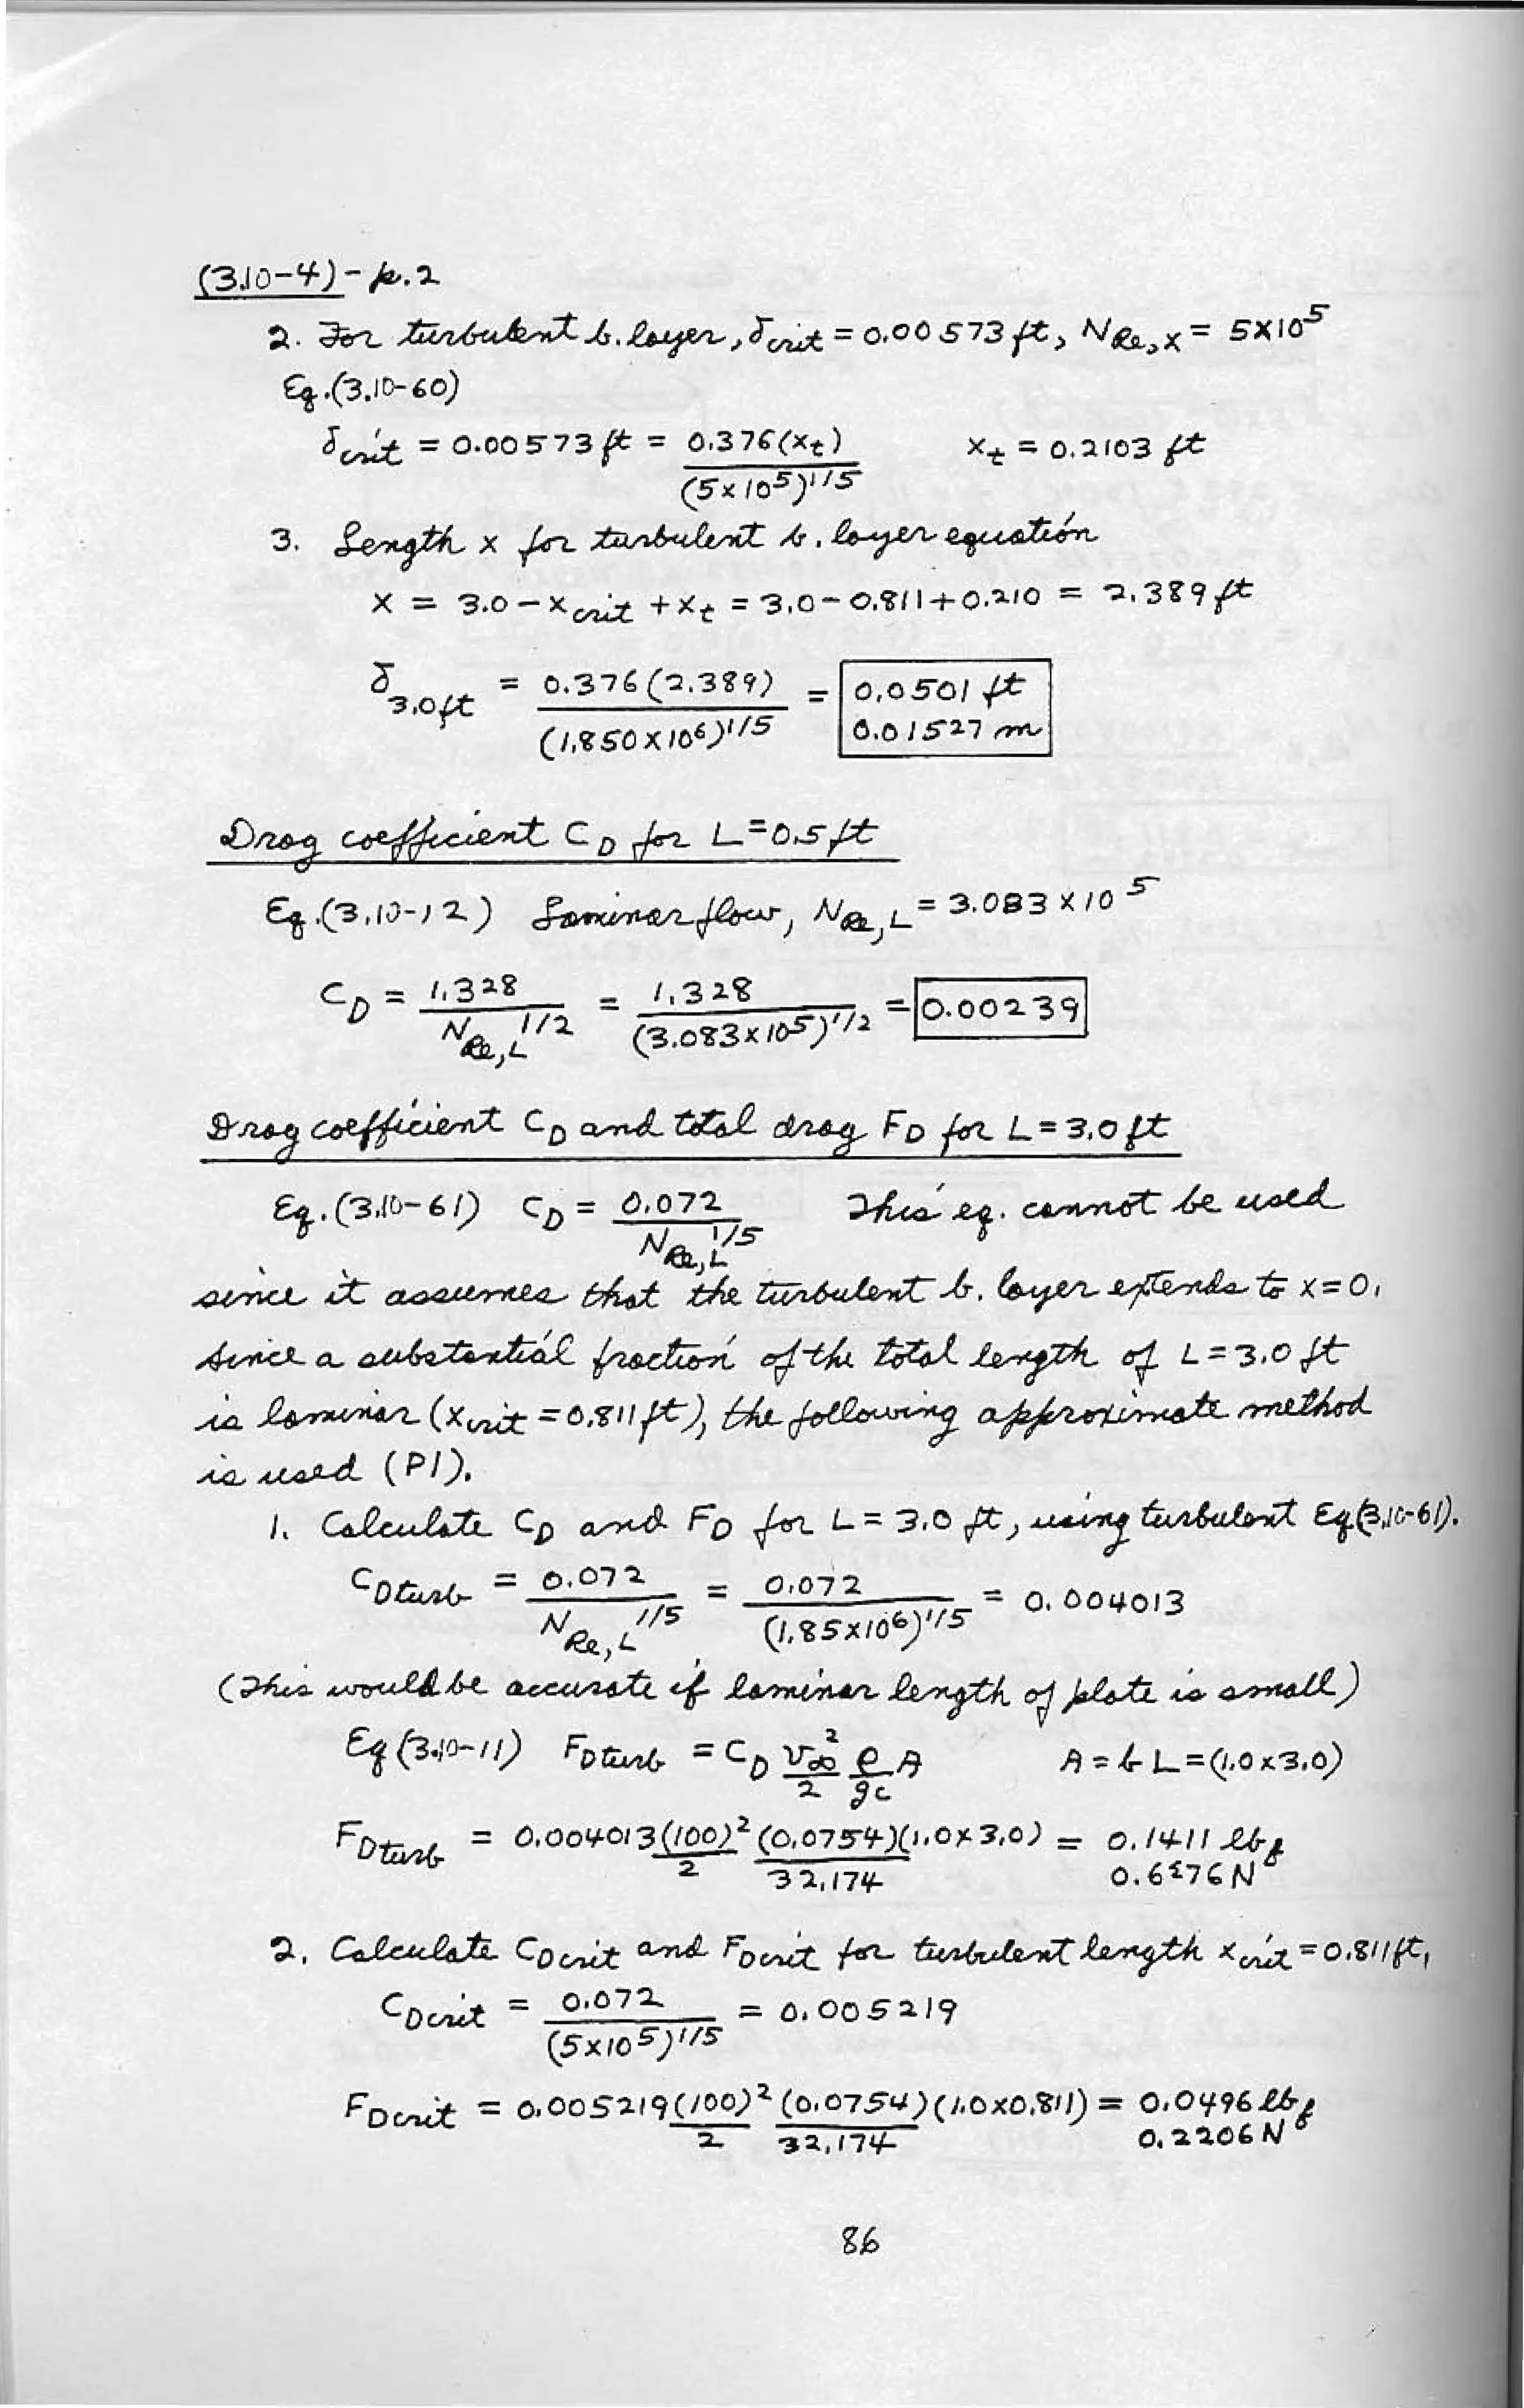 (3.10-4) - p. 2
2. For turbulent b. layer, δcrit = 0.00573 ft, NRe,x = 5×10^5
Eq. (3.10-60)
δcrit = 0.00573 ft = 0.376(xt) / (5×10^5)^1/5    xt = 0.2103 ft
3. Length x for turbulent b. layer equation
x = 3.0 - xcrit + xt = 3.0 - 0.811 + 0.210 = 2.389 ft
δ3.0ft = 0.376(2.389) / (1.850×10^6)^1/5 = 0.0501 ft
0.01527 m
Drag coefficient CD for L=0.5 ft
Eq. (3.10-12) Laminar flow, NRe,L = 3.083 × 10^5
CD = 1.328 / NRe,L^1/2 = 1.328 / (3.083×10^5)^1/2 = 0.00239
Drag coefficient CD and total drag FD for L = 3.0 ft
Eq. (3.10-61) CD = 0.072 / NRe,L^1/5    This eq. cannot be used
since it assumes that the turbulent b. layer extends to x=0.
Since a substantial fraction of the total length of L = 3.0 ft
is laminar (xcrit = 0.811 ft), the following approximate method
is used (P1).
1. Calculate CD and FD for L = 3.0 ft, using turbulent Eq. (3.10-61).
CDturb = 0.072 / NRe,L^1/5 = 0.072 / (1.85×10^6)^1/5 = 0.004013
(This would be accurate if laminar length of plate is small)
Eq (3.10-11) FDturb = CD v∞^2/2 ρ/gc A    A = b L = (1.0×3.0)
FDturb = 0.004013 (100)^2/2 (0.0754)/32.174 (1.0×3.0) = 0.1411 lbf
0.6276 N
2. Calculate CDcrit and FDcrit for turbulent length xcrit = 0.811 ft,
CDcrit = 0.072 / (5×10^5)^1/5 = 0.005219
FDcrit = 0.005219 (100)^2/2 (0.0754)/32.174 (1.0×0.811) = 0.0496 lbf
0.2206 N
86